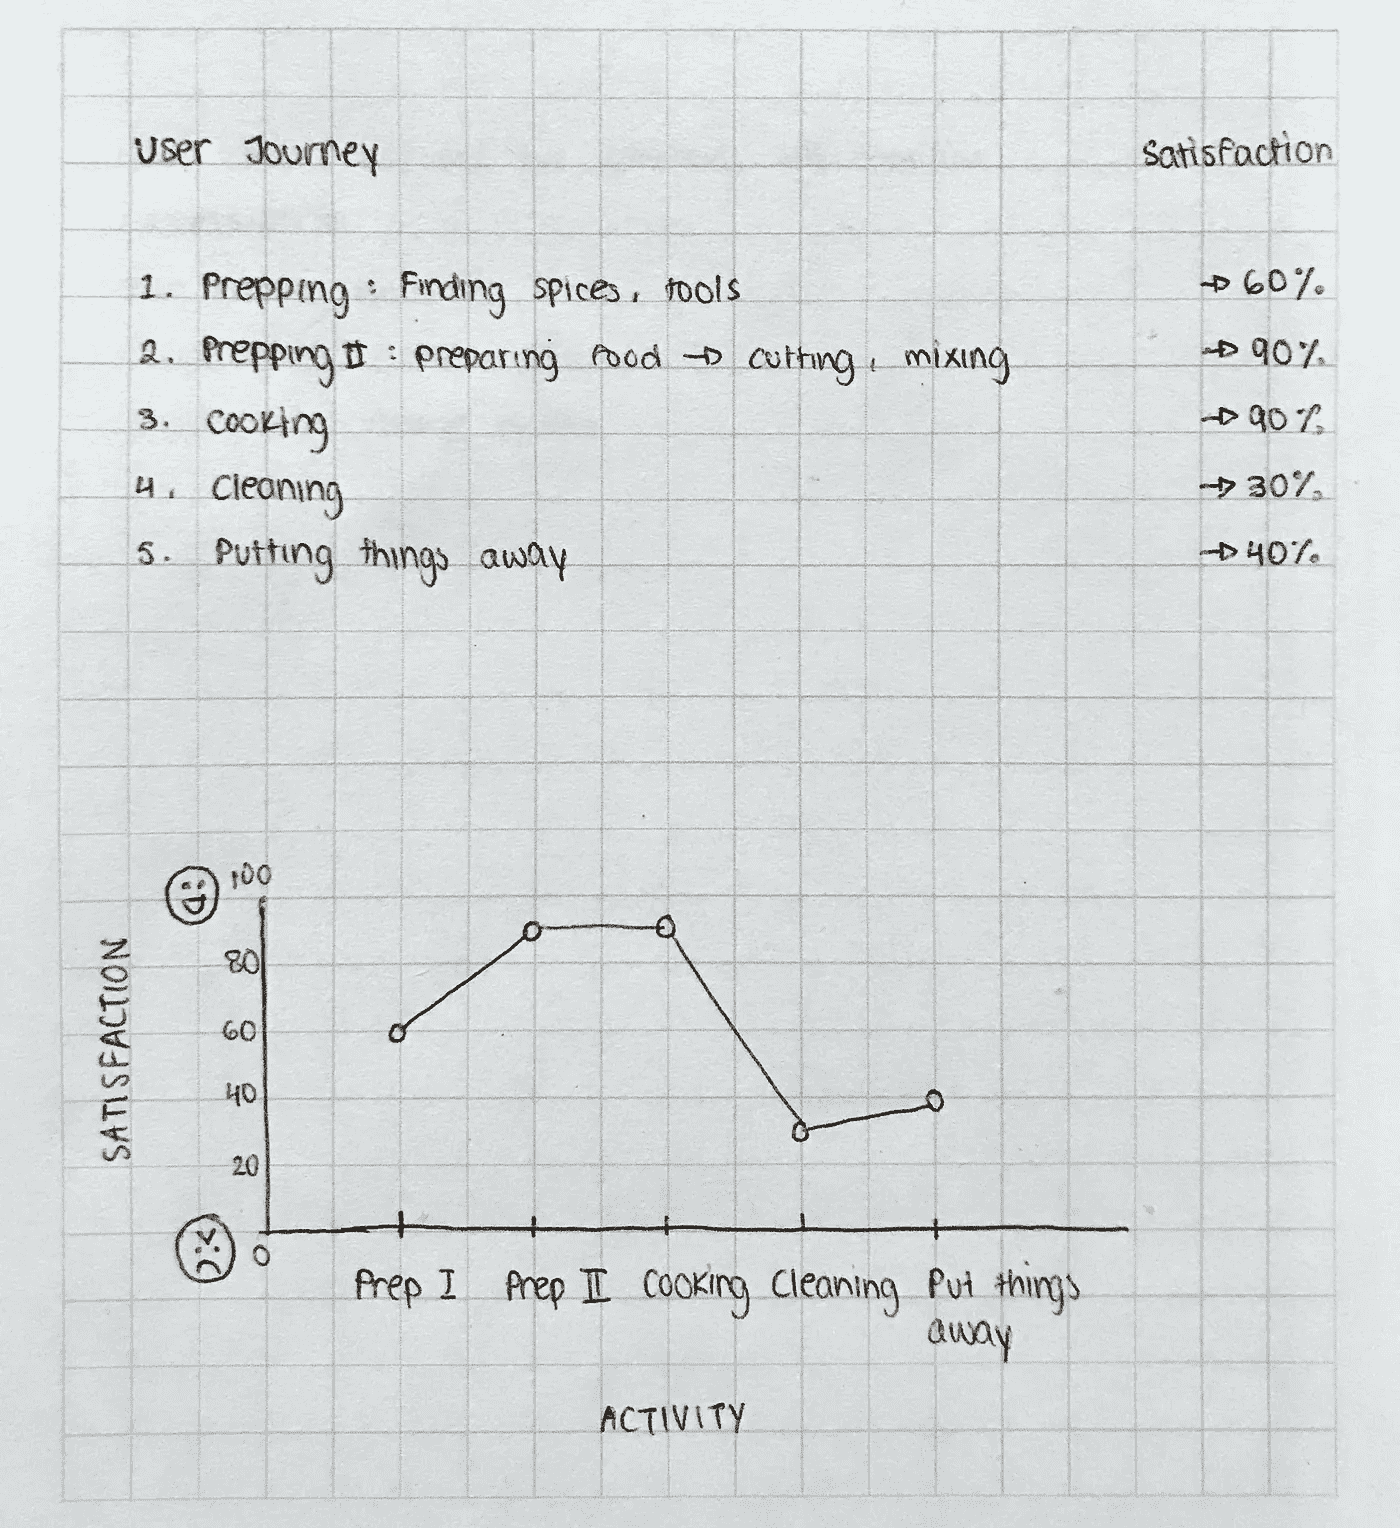 User Journey Satisfaction
1. Prepping : Finding spices, tools → 60%
2. Prepping II : preparing food → cutting, mixing → 90%
3. Cooking → 90%
4. Cleaning → 30%
5. Putting things away → 40%
100
80
60
40
20
0
SATISFACTION
Prep I Prep II Cooking Cleaning Put things
away
ACTIVITY